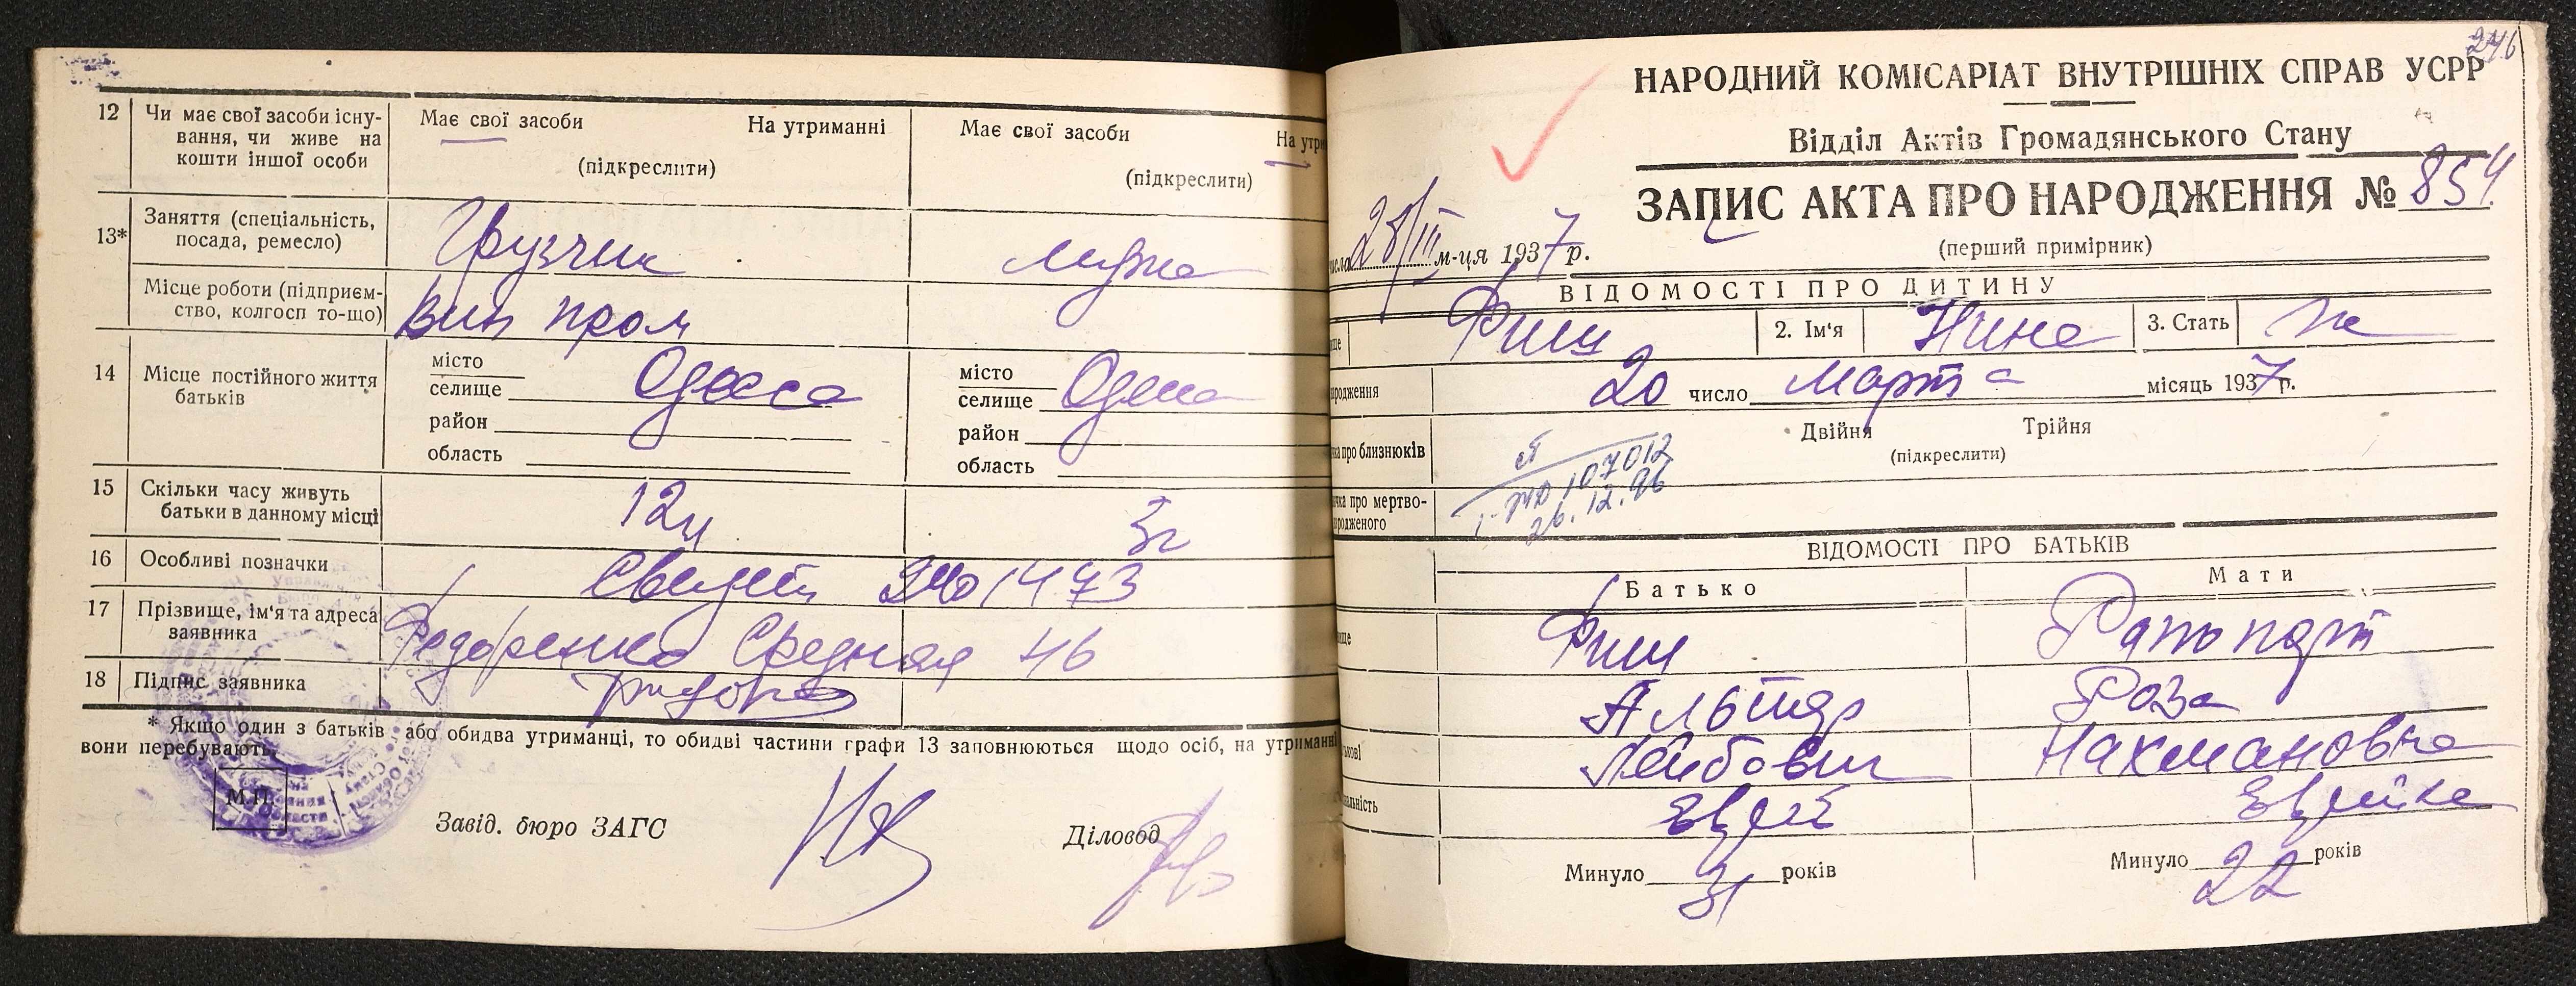 12 Чи має свої засоби існу-
вання, чи живе на
кошти іншої особи
Має свої засоби На утриманні
(підкреслити)
Має свої засоби На утри
(підкреслити)
13* Заняття (спеціальність,
посада, ремесло)
Грузчик мужа
Місце роботи (підприєм-
ство, колгосп то-що)
Вин пром
14 Місце постійного життя
батьків
місто
селище Одесса
район
область
місто
селище Одесса
район
область
15 Скільки часу живуть
батьки в данному місці
12 л 3 г
16 Особливі позначки
1473
17 Прізвище, ім'я та адреса
заявника
Федоренко Средняя 46
18 Підпис заявника
* Якщо один з батьків або обидва утриманці, то обидві частини графи 13 заповнюються щодо осіб, на утриманні
вони перебувають.
М.П.
Завід. бюро ЗАГС Діловод
246
НАРОДНИЙ КОМІСАРІАТ ВНУТРІШНІХ СПРАВ УСРР
Відділ Актів Громадянського Стану
ЗАПИС АКТА ПРО НАРОДЖЕННЯ № 854
(перший примірник)
28/III м-ця 1937 р.
ВІДОМОСТІ ПРО ДИТИНУ
Фиш 2. Ім'я Нина 3. Стать ж
ародження 20 число Марта місяць 1937 р.
про близнюків Двійня Трійня
(підкреслити)
чка про мертво-
родженого
107012
26.12.96
ВІДОМОСТІ ПРО БАТЬКІВ
Батько Мати
Фиш Рапопорт
Альтер Роза
Лейбович Нахмановна
Еврей Еврейка
Минуло 31 років Минуло 22 років